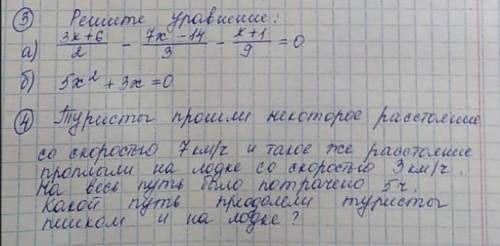 ③ Решите уравнение:
а) (3x+6)/2 - (7x-14)/3 - (x+1)/9 = 0
б) 5x² + 3x = 0
④ Туристы прошли некоторое расстояние
со скоростью 7км/ч и такое же расстояние
проплыли на лодке со скоростью 3км/ч.
На весь путь было потрачено 5ч.
Какой путь преодолели туристы
пешком и на лодке?